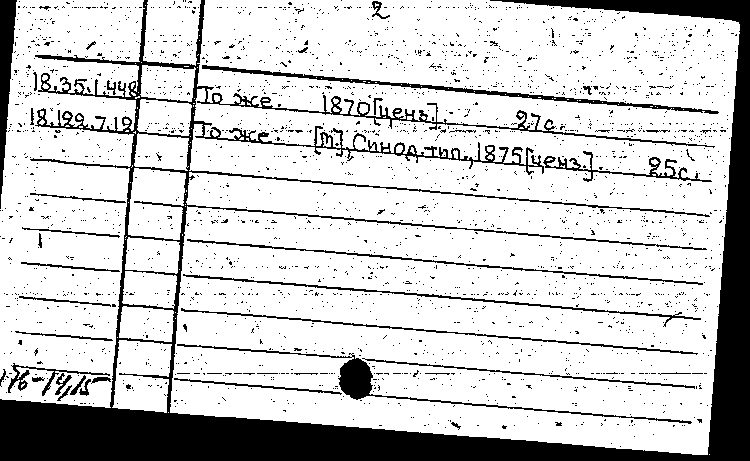 2
18.35.1.448 То же. 1870[ценз]. 27с.
18.199.7.19 То же. [М], Синод. тип., 1875[ценз.]. 25с.